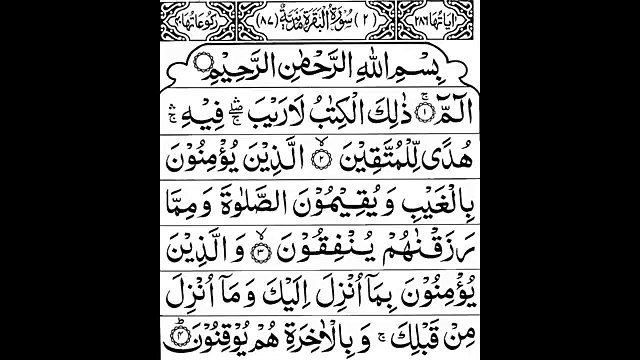 اٰیَاتُهَا ٢٨٦ (٢) سُوْرَةُ الْبَقَرَةِ مَدَنِيَّةٌ (٨٧) رُكُوْعَاتُهَا ٤٠
بِسْمِ اللهِ الرَّحْمٰنِ الرَّحِيْمِ
الٓمّٓ ۚ﴿١﴾ ذٰلِكَ الْكِتٰبُ لَا رَيْبَ ۛۖ فِيْهِ ۛۚ
هُدًى لِّلْمُتَّقِيْنَ ۙ﴿٢﴾ الَّذِيْنَ يُؤْمِنُوْنَ
بِالْغَيْبِ وَيُقِيْمُوْنَ الصَّلٰوةَ وَمِمَّا
رَزَقْنٰهُمْ يُنْفِقُوْنَ ۙ﴿٣﴾ وَالَّذِيْنَ
يُؤْمِنُوْنَ بِمَآ اُنْزِلَ اِلَيْكَ وَمَآ اُنْزِلَ
مِنْ قَبْلِكَ ۚ وَبِالْاٰخِرَةِ هُمْ يُوْقِنُوْنَ ؕ﴿٤﴾